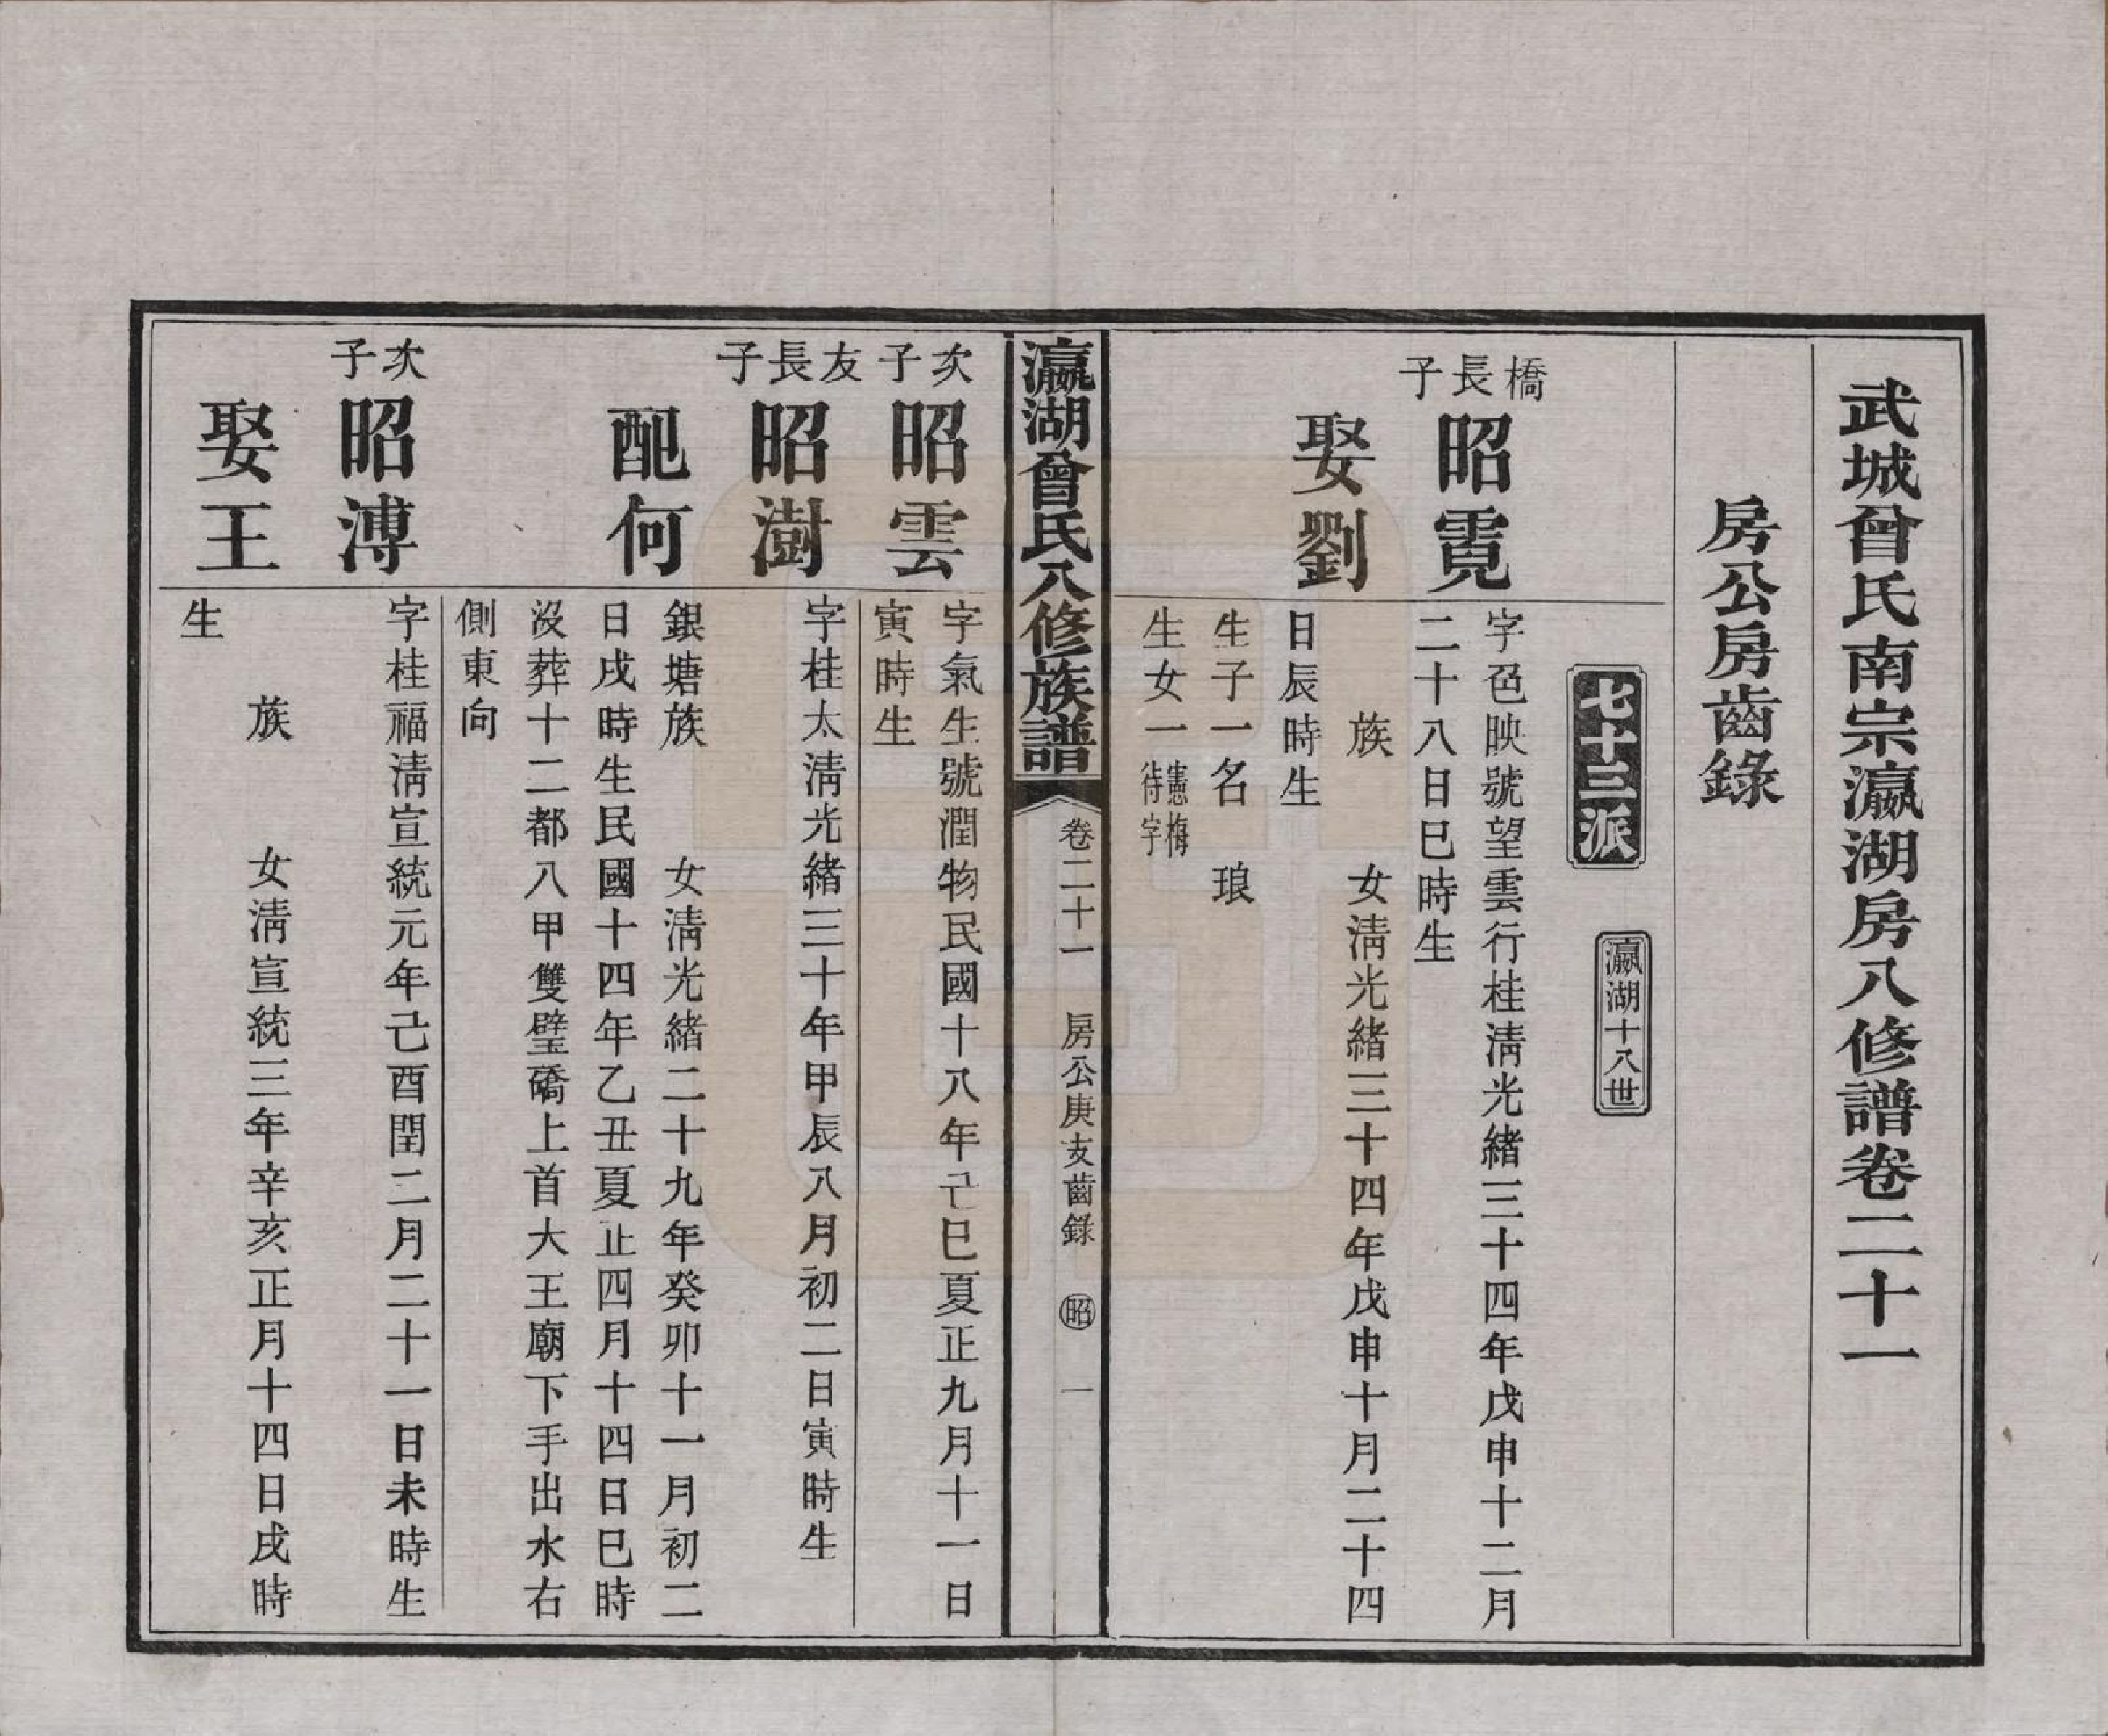 武城曾氏南宗瀛湖房八修譜卷二十一
房公房齒錄
七十三派
瀛湖十八世
橋長子
昭霓
字色映號望雲行桂淸光緒三十四年戊申十二月
二十八日巳時生
娶劉
族　女淸光緒三十四年戊申十月二十四
日辰時生
生子一名　琅
生女一憲梅待字
瀛湖曾氏八修族譜　卷二十一　房公庚友齒錄　昭　一
次子
昭雲
字氣生號潤物民國十八年己巳夏正九月十一日
寅時生
友長子
昭澍
字桂太淸光緒三十年甲辰八月初二日寅時生
配何
銀塘族　女淸光緒二十九年癸卯十一月初二
日戌時生民國十四年乙丑夏正四月十四日巳時
沒葬十二都八甲雙璧礄上首大王廟下手出水右
側東向
次子
昭溥
字桂福淸宣統元年己酉閏二月二十一日未時生
娶王
族　女淸宣統三年辛亥正月十四日戌時
生